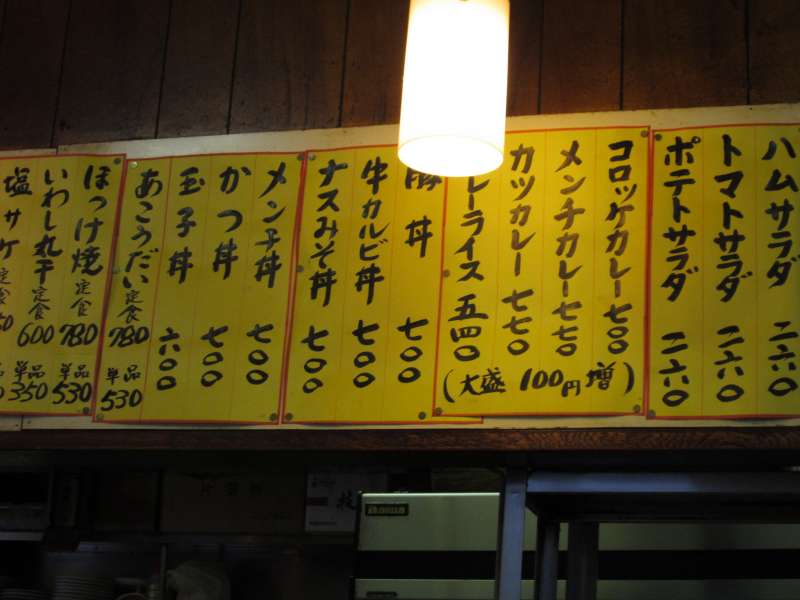 ハムサラダ 二六〇
トマトサラダ 二六〇
ポテトサラダ 二六〇
コロッケカレー 七〇〇
メンチカレー 七五〇
カツカレー 七五〇
レーライス 五四〇
(大盛 100円増)
豚丼 七〇〇
牛カルビ丼 七〇〇
ナスみそ丼 七〇〇
メンチ丼 七〇〇
かつ丼 七〇〇
玉子丼 六〇〇
あこうだい 定食 780 単品 530
ほっけ焼 定食 780 単品 530
いわし丸干 定食 600 単品 350
塩サケ 定食